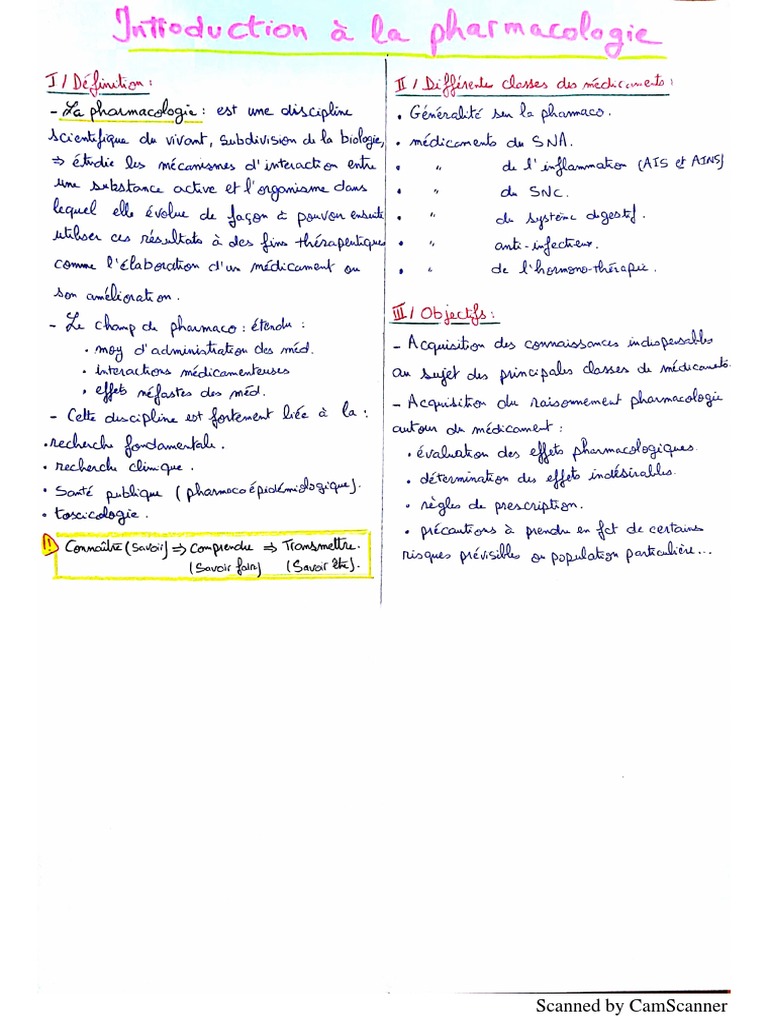 Introduction à la pharmacologie
I / Définition :
- La pharmacologie : est une discipline
scientifique du vivant, subdivision de la biologie,
⇒ étudie les mécanismes d'interaction entre
une substance active et l'organisme dans
lequel elle évolue de façon à pouvoir ensuite
utiliser ces résultats à des fins thérapeutiques
comme l'élaboration d'un médicament ou
son amélioration.
- Le champ de pharmaco : étendu :
• moy d'administration des méd.
• interactions médicamenteuses
• effets néfastes des méd.
- Cette discipline est fortement liée à la :
• recherche fondamentale.
• recherche clinique.
• Santé publique (pharmacoépidémiologique).
• toscicologie.
! Connaître (Savoir) ⇒ Comprendre ⇒ Transmettre.
(Savoir fair) (Savoir êtr).
II / Différentes classes des médicaments :
• Généralité sur la pharmaco.
• médicaments du SNA.
• " de l'inflammation (AIS et AINS)
• " du SNC.
• " du système digestif.
• " anti-infectieux.
• " de l'hormono-thérapie.
III / Objectifs :
- Acquisition des connaissances indispensables
au sujet des principales classes de médicamets.
- Acquisition du raisonnement pharmacologie
autour du médicament :
• évaluation des effets pharmacologiques.
• détermination des effets indésirables.
• règles de prescription.
• précautions à prendre en fct de certains
risques prévisibles ou population particulière...
Scanned by CamScanner